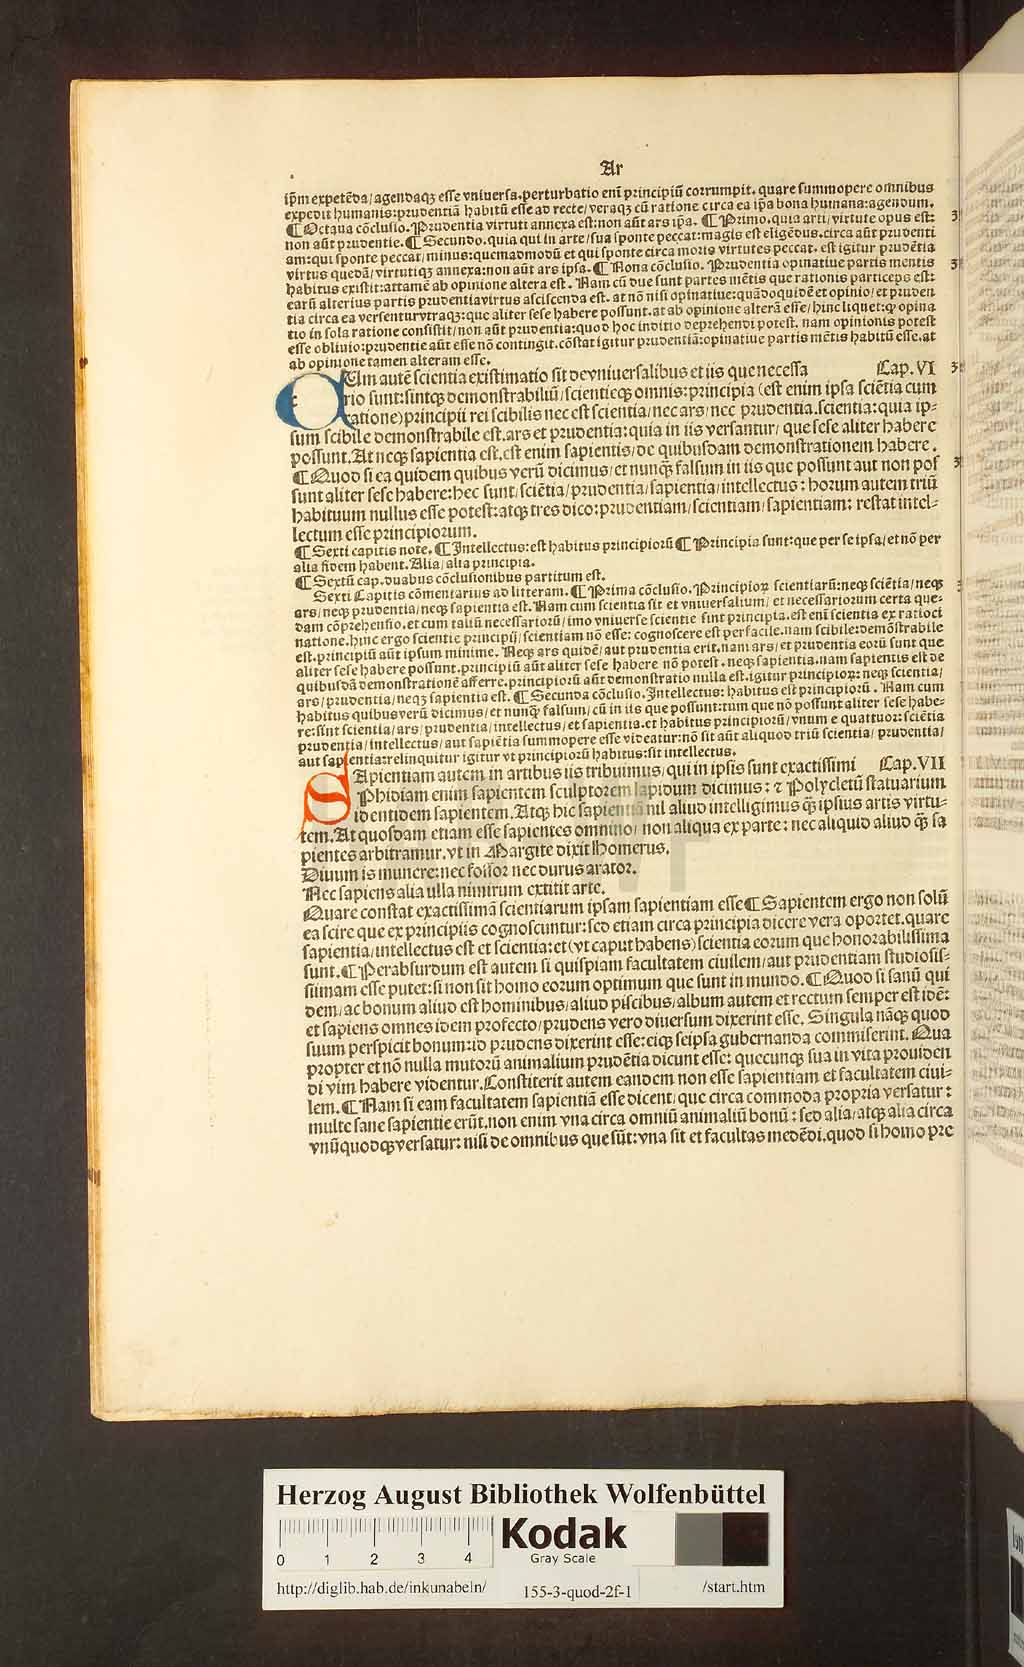 Ar
ip̄m expetēda/agendaq; esse vniuersa.perturbatio enī principiū corrumpit. quare summopere omnibus
expedit humanis:prudentiā habitū esse ad recte/veraq; cū ratione circa ea ip̄a bona humana:agendum.
¶Octaua cōclusio. Prudentia virtuti annexa est:non aūt ars ip̄a. ¶Primo.quia arti/virtute opus est:
non aūt prudentie.¶Secundo.quia qui in arte/sua sponte peccat:magis est eligēdus.circa aūt prudenti
am:qui sponte peccat/minus:quemadmodū et qui sponte circa moris virtutes peccat. est igitur prudētia
virtus quedā/virtutiq; annexa:non aūt ars ipsa.¶Nona cōclusio. Prudentia opinatiue partis mentis
habitus existit:attamē ab opinione altera est. Nam cū due sunt partes mētis que rationis particeps est:
earū alterius partis prudentiavirtus asciscenda est. at nō nisi opinatiue:quādoquidē et opinio/et pruden
tia circa ea versenturvtraq;:que aliter sese habere possunt.at ab opinione alterā esse/hinc liquet:q̄ opina
tio in sola ratione consistit/non aūt prudentia:quod hoc inditio deprehendi potest. nam opinionis potest
esse obliuio:prudentie aūt esse nō contingit.cōstat igitur prudentiā:opinatiue partis mētis habitū esse.at
ab opinione tamen alteram esse.
CUm autē scientia existimatio sit devniuersalibus et iis que necessa Cap.VI
rio sunt:sintq; demonstrabiliū/scientieq; omnis:principia (est enim ipsa sciētia cum
ratione)principii rei scibilis nec est scientia/nec ars/nec prudentia.scientia:quia ip-
sum scibile demonstrabile est.ars et prudentia:quia in iis versantur/que sese aliter habere
possunt.At neq; sapientia est.est enim sapientis/de quibusdam demonstrationem habere.
¶Quod si ea quidem quibus verū dicimus/et nunq̄ falsum in iis que possunt aut non pos
sunt aliter sese habere:hec sunt/sciētia/prudentia/sapientia/intellectus: horum autem triū
habituum nullus esse potest:atq; tres dico:prudentiam/scientiam/sapientiam: restat intel-
lectum esse principiorum.
¶Sexti capitis note.¶Intellectus:est habitus principiorū¶Principia sunt:que per se ipsa/et nō per
alia fidem habent.Alia/alia principia.
¶Sextū cap.duabus cōclusionibus partitum est.
Sexti Capitis cōmentarius ad litteram.¶Prima cōclusio. Principioꝝ scientiarū:neq; sciētia/neq;
ars/neq; prudentia/neq; sapientia est. Nam cum scientia sit et vniuersalium/et necessariorum certa que-
dam cōprehensio.et cum taliū necessariorū/imo vniuerse scientie sint principia.est enī scientia ex ratioci
natione.hinc ergo scientie principij/scientiam nō esse: cognoscere est per facile.nam scibile:demōstrabile
est.principiū aūt ipsum minime. Neq; ars quidē/aut prudentia erit.nam ars/et prudentia eorū sunt que
aliter sese habere possunt.principiū aūt aliter sese habere nō potest.neq; sapientia.nam sapientis est de
quibusdā demonstrationē afferre.principiorū aūt demonstratio nulla est.igitur principioꝝ:neq; scientia/
ars/prudentia/neq; sapientia est.¶Secunda cōclusio.Intellectus: habitus est principiorū. Nam cum
habitus quibus verū dicimus/et nunq̄ falsum/cū in iis que possunt:tum que nō possunt aliter sese habe-
re:sint scientia/ars/prudentia/intellectus/et sapientia.et habitus principiorū/vnum e quattuor:sciētia
prudentia/intellectus/aut sapiētia summopere esse videatur:nō sit aūt aliquod triū scientia/prudentia/
aut sapientia:relinquitur igitur vt principiorū habitus:sit intellectus.
SApientiam autem in artibus iis tribuimus/qui in ipsis sunt exactissimi Cap.VII
Phidiam enim sapientem sculptorem lapidum dicimus: ⁊ Polycletū statuarium
identidem sapientem.Atq; hic sapientiā nil aliud intelligimus q̄ ipsius artis virtu-
tem.At quosdam etiam esse sapientes omnino/non aliqua ex parte: nec aliquid aliud q̄ sa
pientes arbitramur.vt in Margite dixit Homerus.
Diuum is munere:nec fossor nec durus arator.
Nec sapiens alia ulla nimirum extitit arte.
Quare constat exactissimā scientiarum ipsam sapientiam esse¶Sapientem ergo non solū
ea scire que ex principiis cognoscuntur:sed etiam circa principia dicere vera oportet.quare
sapientia/intellectus est et scientia:et (vt caput habens) scientia eorum que honorabilissima
sunt.¶Perabsurdum est autem si quispiam facultatem ciuilem/aut prudentiam studiosis-
simam esse putet:si non sit homo eorum optimum que sunt in mundo.¶Quod si sanū qui
dem/ac bonum aliud est hominibus/aliud piscibus/album autem et rectum semper est idē:
et sapiens omnes idem profecto/prudens vero diuersum dixerint esse. Singula nāq; quod
suum perspicit bonum:id prudens dixerint esse:eiq; seipsa gubernanda commiserint. Qua
propter et nō nulla mutorū animalium prudētia dicunt esse: quecunq; sua in vita prouiden
di vim habere videntur.Constiterit autem eandem non esse sapientiam et facultatem ciui-
lem.¶Nam si eam facultatem sapientiā esse dicent/que circa commoda propria versatur:
multe sane sapientie erūt.non enim vna circa omniū animaliū bonū: sed alia/atq; alia circa
vnūquodq; versatur: nisi de omnibus que sūt:vna sit et facultas medēdi.quod si homo pre
HAB WF
Herzog August Bibliothek Wolfenbüttel
0 1 2 3 4
Kodak
Gray Scale
http://diglib.hab.de/inkunabeln/ 155-3-quod-2f-1 /start.htm